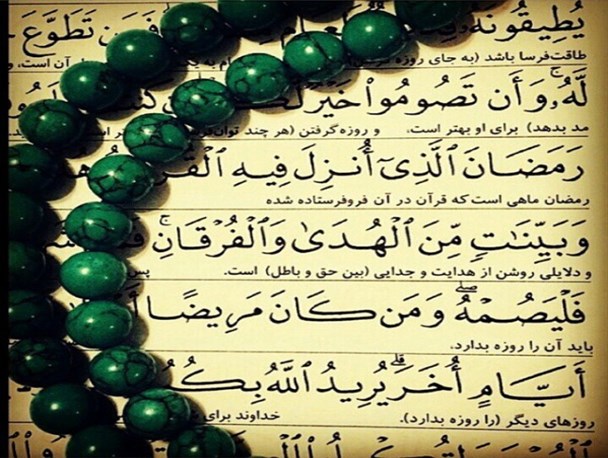 يُطِيقُونَهُۥ فَمَن تَطَوَّعَ
طاقت‌فرسا باشد (به جای روزه آن است، و
لَّهُۥ وَأَن تَصُومُوا۟ خَيْرٌ
مد بدهد) برای او بهتر است. و روزه‌گرفتن (هر چند توان‌
رَمَضَانَ ٱلَّذِىٓ أُنزِلَ فِيهِ
رمضان ماهی است که قرآن در آن فروفرستاده شده
وَبَيِّنَـٰتٍ مِّنَ ٱلْهُدَىٰ وَٱلْفُرْقَانِ ۚ
و دلایلی روشن از هدایت و جدایی (بین حق و باطل) است. پس
فَلْيَصُمْهُ ۖ وَمَن كَانَ مَرِيضًا
باید آن را روزه بدارد.
أَيَّامٍ أُخَرَ ۗ يُرِيدُ ٱللَّهُ بِكُ
روزهای دیگر (را روزه بدارد). خداوند برای